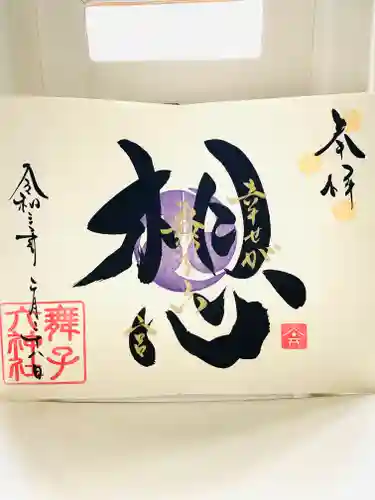 奉拝
想
幸せが
令和三年
二月二十八日
舞子
六神社